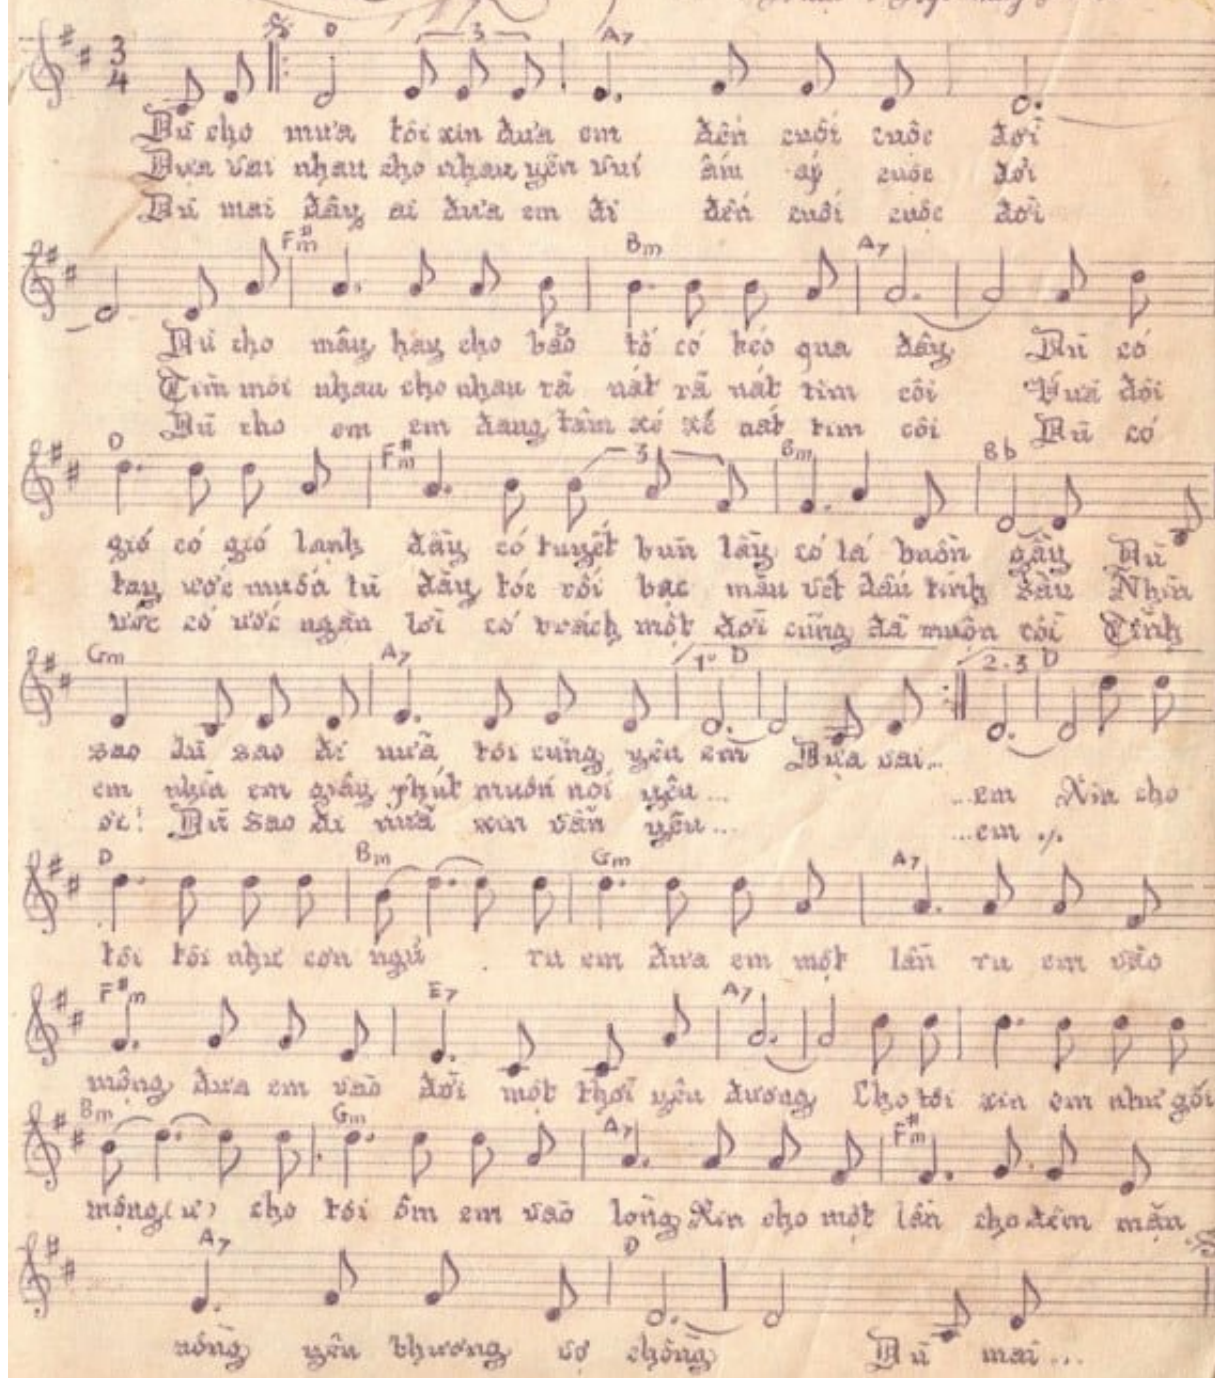 3
D 3 A7
3 4
Dù cho mưa tôi xin đưa em đến cuối cuộc đời
Dựa vai nhau cho nhau yên vui ấm áp cuộc đời
Dù mai đây ai đưa em đi đến cuối cuộc đời
F#m Bm A7
Dù cho mây hay cho bão tố có kéo qua đây Dù có
Tìm môi nhau cho nhau rã nát rã nát tim côi Vừa đôi
Dù cho em em đang tâm xé xé nát tim côi Dù có
D F#m 3 Bm Bb
gió có gió lạnh đầy có tuyết bùn lầy có lá buồn gầy Dù
tay ước muốn tù đầy tóc rối bạc mầu vết dấu tình sầu Nhìn
ước có ước ngàn lời có trách một đời cũng đã muộn rồi Tình
Gm A7 1o D 2.3 D
sao dù sao đi nữa tôi cũng yêu em Dựa vai...
em nhìn em giây phút muốn nói yêu... ...em Xin cho
ơi! Dù sao đi nữa xin vẫn yêu... ...em ./.
D Bm Gm A7
tôi tôi như cơn ngủ ru em đưa em một lần ru em vào
F#m E7 A7
mộng đưa em vào đời một thời yêu đương Cho tôi xin em như gối
Bm Gm A7 F#m
mộng (ư) cho tôi ôm em vào lòng Xin cho một lần cho đêm mặn
A7 D
nồng yêu thương vợ chồng Dù mai...